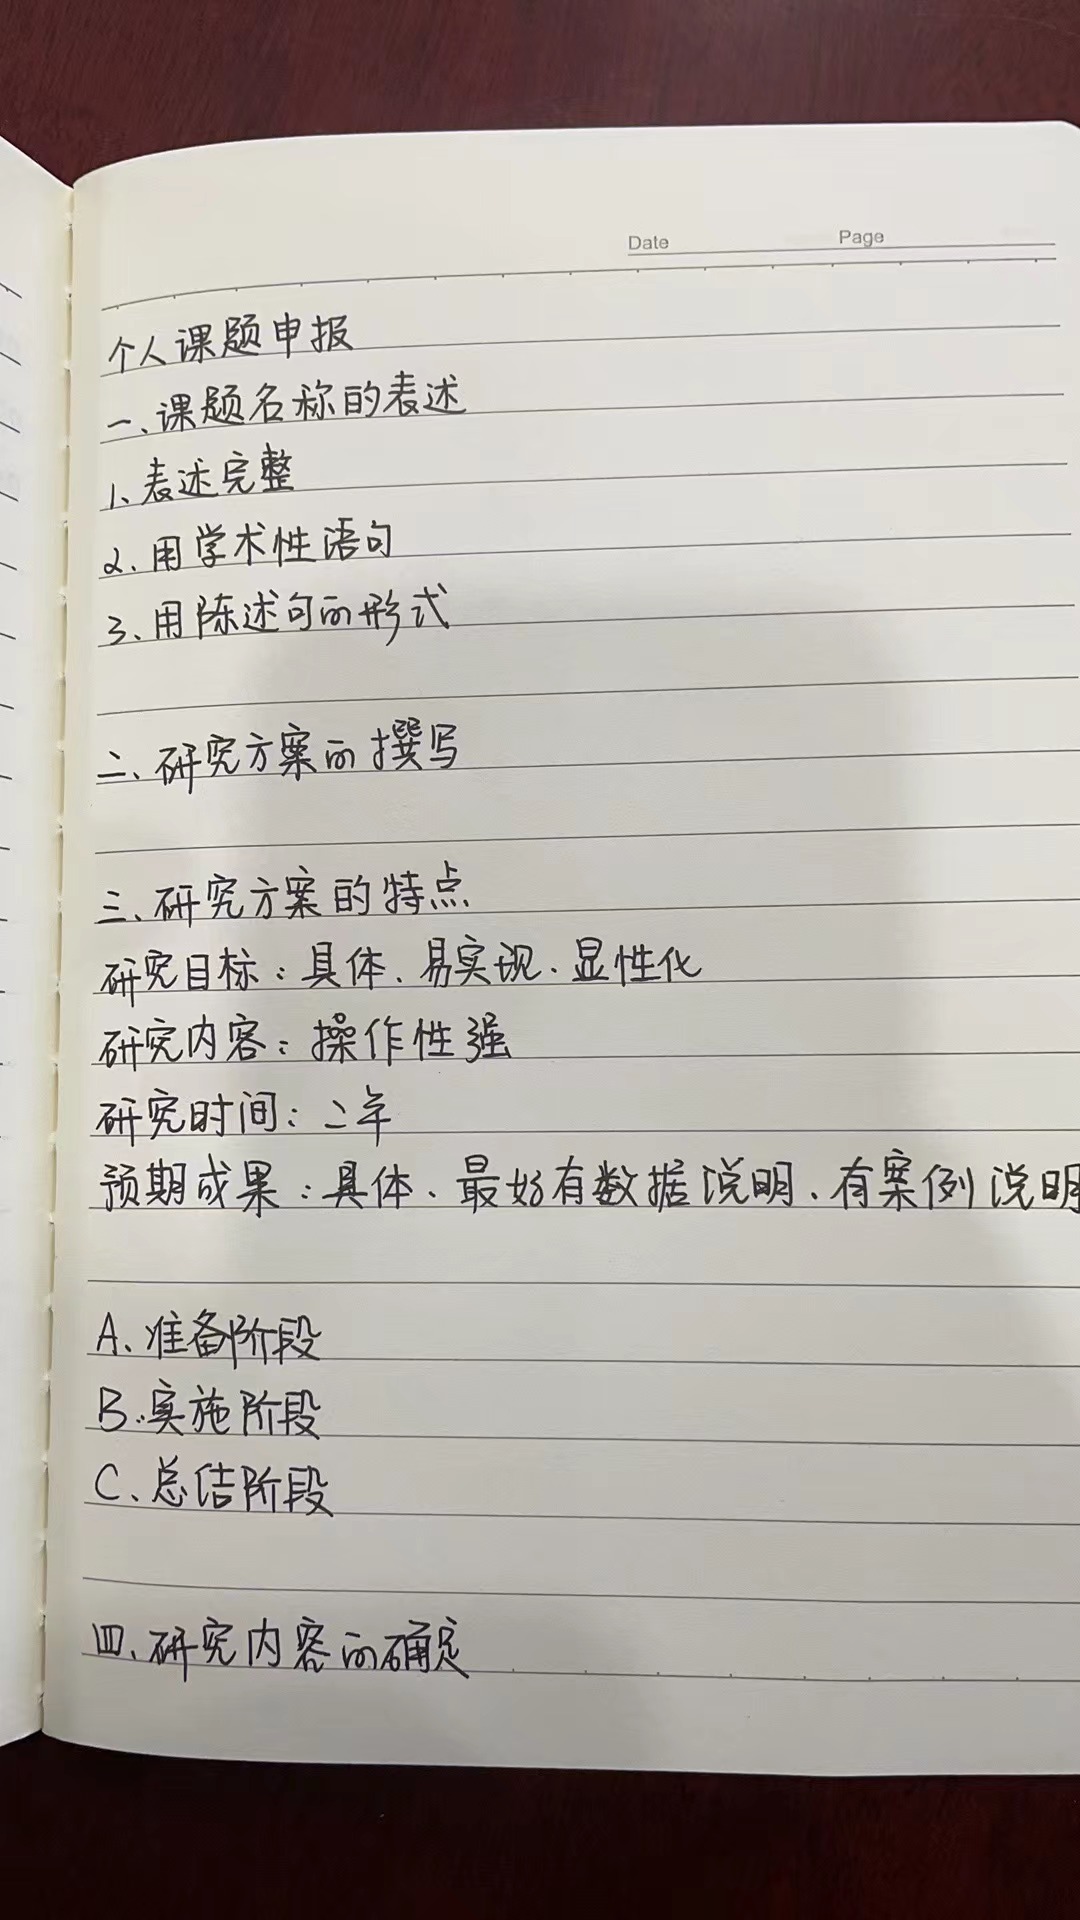 Date Page
个人课题申报
一、课题名称的表述
1、表述完整
2、用学术性语句
3、用陈述句的形式
二、研究方案的撰写
三、研究方案的特点
研究目标：具体、易实现、显性化
研究内容：操作性强
研究时间：二年
预期成果：具体、最好有数据说明、有案例说明
A、准备阶段
B、实施阶段
C、总结阶段
四、研究内容的确定